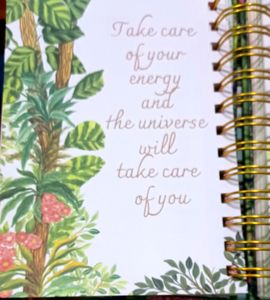 Take care
of your
energy
and
the universe
will
take care
of you